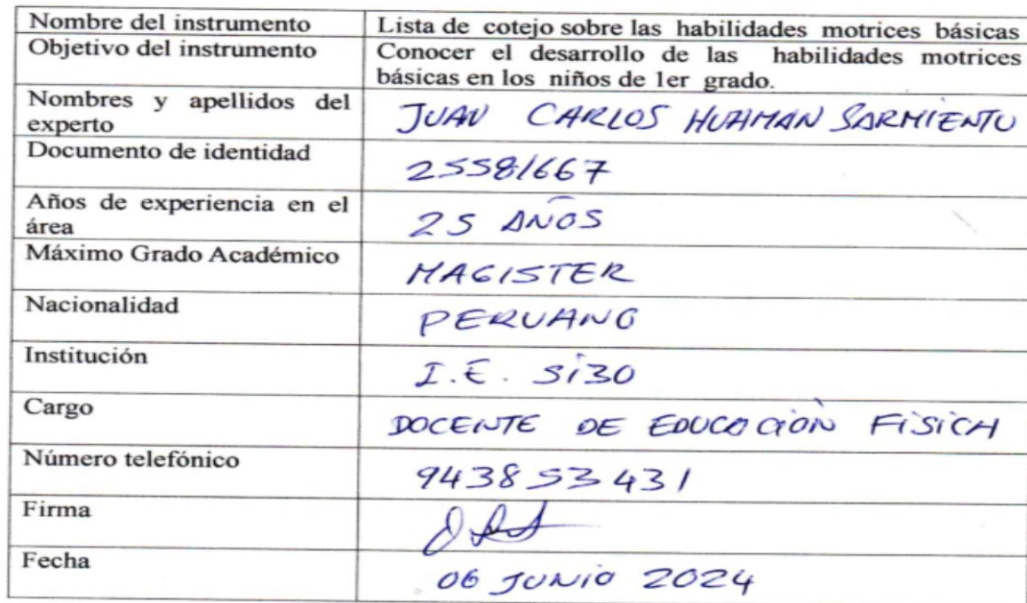 Nombre del instrumento
Lista de cotejo sobre las habilidades motrices básicas
Objetivo del instrumento
Conocer el desarrollo de las habilidades motrices
básicas en los niños de 1er grado.
Nombres y apellidos del
experto
JUAN CARLOS HUAMAN SARMIENTO
Documento de identidad
25581667
Años de experiencia en el
área
25 AÑOS
Máximo Grado Académico
MAGISTER
Nacionalidad
PERUANO
Institución
I.E. 5130
Cargo
DOCENTE DE EDUCACIÓN FÍSICA
Número telefónico
943853431
Firma
Fecha
06 JUNIO 2024